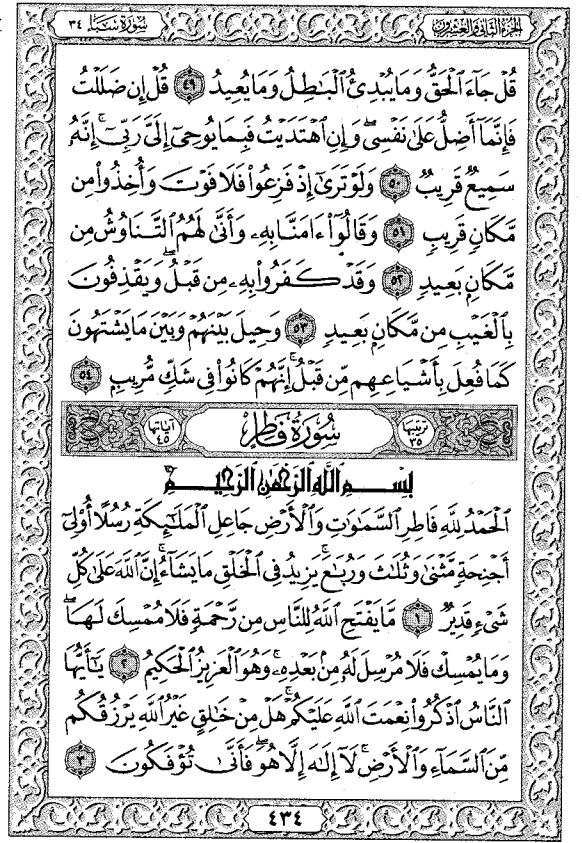 الجزء الثاني والعشرون
سورة سبإ ٣٤
قُلْ جَآءَ ٱلْحَقُّ وَمَا يُبْدِئُ ٱلْبَٰطِلُ وَمَا يُعِيدُ ٤٩ قُلْ إِن ضَلَلْتُ
فَإِنَّمَآ أَضِلُّ عَلَىٰ نَفْسِى ۖ وَإِنِ ٱهْتَدَيْتُ فَبِمَا يُوحِىٓ إِلَىَّ رَبِّىٓ ۚ إِنَّهُۥ
سَمِيعٌ قَرِيبٌ ٥٠ وَلَوْ تَرَىٰٓ إِذْ فَزِعُوا۟ فَلَا فَوْتَ وَأُخِذُوا۟ مِن
مَّكَانٍ قَرِيبٍ ٥١ وَقَالُوٓا۟ ءَامَنَّا بِهِۦ وَأَنَّىٰ لَهُمُ ٱلتَّنَاوُشُ مِن
مَّكَانٍۭ بَعِيدٍ ٥٢ وَقَدْ كَفَرُوا۟ بِهِۦ مِن قَبْلُ ۖ وَيَقْذِفُونَ
بِٱلْغَيْبِ مِن مَّكَانٍۭ بَعِيدٍ ٥٣ وَحِيلَ بَيْنَهُمْ وَبَيْنَ مَا يَشْتَهُونَ
كَمَا فُعِلَ بِأَشْيَاعِهِم مِّن قَبْلُ ۚ إِنَّهُمْ كَانُوا۟ فِى شَكٍّ مُّرِيبٍۭ ٥٤
ترتيبها ٣٥ سورة فاطر آياتها ٤٥
بسم الله الرحمن الرحيم
ٱلْحَمْدُ لِلَّهِ فَاطِرِ ٱلسَّمَٰوَٰتِ وَٱلْأَرْضِ جَاعِلِ ٱلْمَلَٰٓئِكَةِ رُسُلًا أُو۟لِىٓ
أَجْنِحَةٍ مَّثْنَىٰ وَثُلَٰثَ وَرُبَٰعَ ۚ يَزِيدُ فِى ٱلْخَلْقِ مَا يَشَآءُ ۚ إِنَّ ٱللَّهَ عَلَىٰ كُلِّ
شَىْءٍ قَدِيرٌ ١ مَّا يَفْتَحِ ٱللَّهُ لِلنَّاسِ مِن رَّحْمَةٍ فَلَا مُمْسِكَ لَهَا ۖ
وَمَا يُمْسِكْ فَلَا مُرْسِلَ لَهُۥ مِنۢ بَعْدِهِۦ ۚ وَهُوَ ٱلْعَزِيزُ ٱلْحَكِيمُ ٢ يَٰٓأَيُّهَا
ٱلنَّاسُ ٱذْكُرُوا۟ نِعْمَتَ ٱللَّهِ عَلَيْكُمْ ۚ هَلْ مِنْ خَٰلِقٍ غَيْرُ ٱللَّهِ يَرْزُقُكُم
مِّنَ ٱلسَّمَآءِ وَٱلْأَرْضِ ۚ لَآ إِلَٰهَ إِلَّا هُوَ ۖ فَأَنَّىٰ تُؤْفَكُونَ ٣
٤٣٤